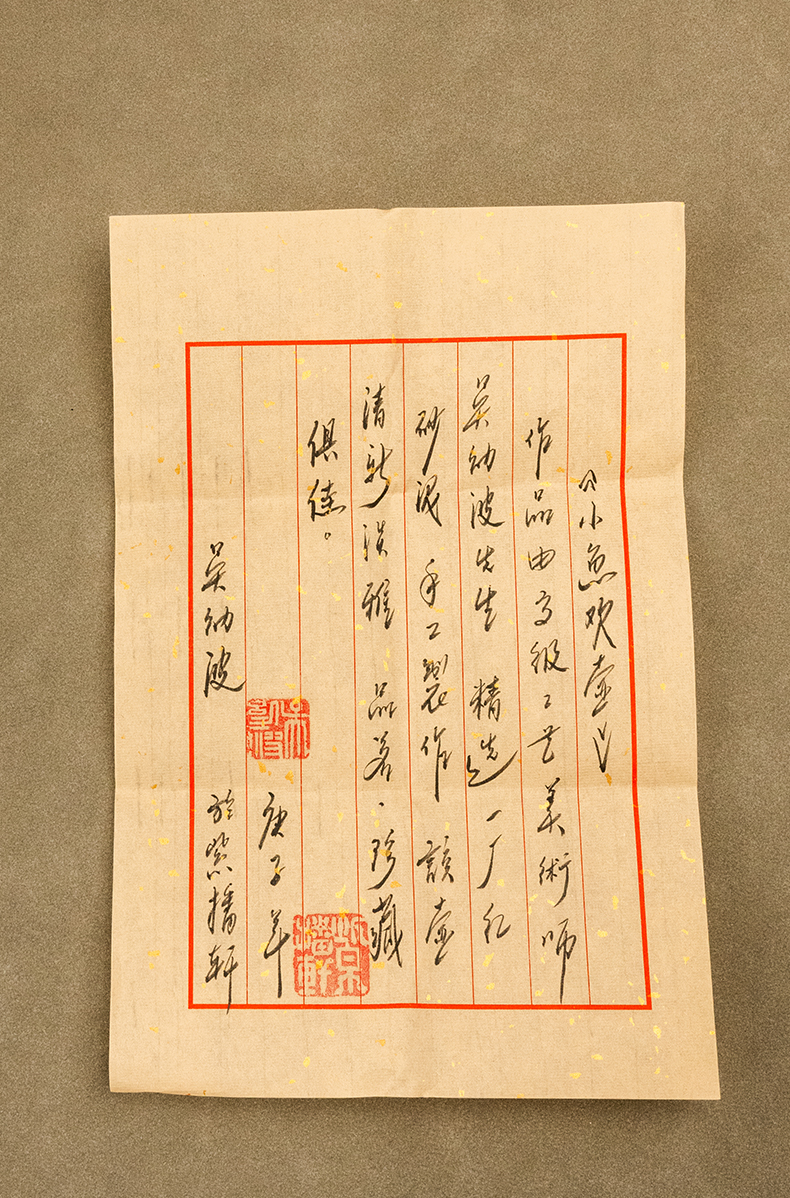 《小鱼欢壶》
作品由高级工艺美術师
吴幼波先生 精选一厂红
砂泥 手工製作 該壶
清新淡雅 品茗、珍藏
俱佳。
庚子年
吴幼波 於紫播轩